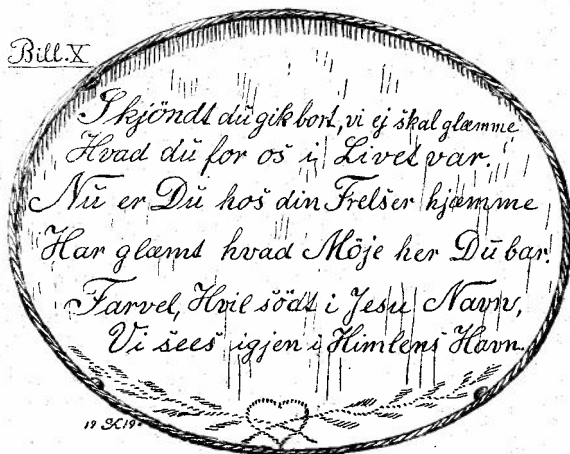 Bill. X
Skjöndt du gik bort, vi ej skal glæmme
Hvad du for os i Livet var.
Nu er Du hos din Frelser hjæmme
Har glæmt hvad Möje her Du bar.
Farvel, Hvil södt i Jesu Navn,
Vi sees igjen i Himlens Havn.
19 SK 19